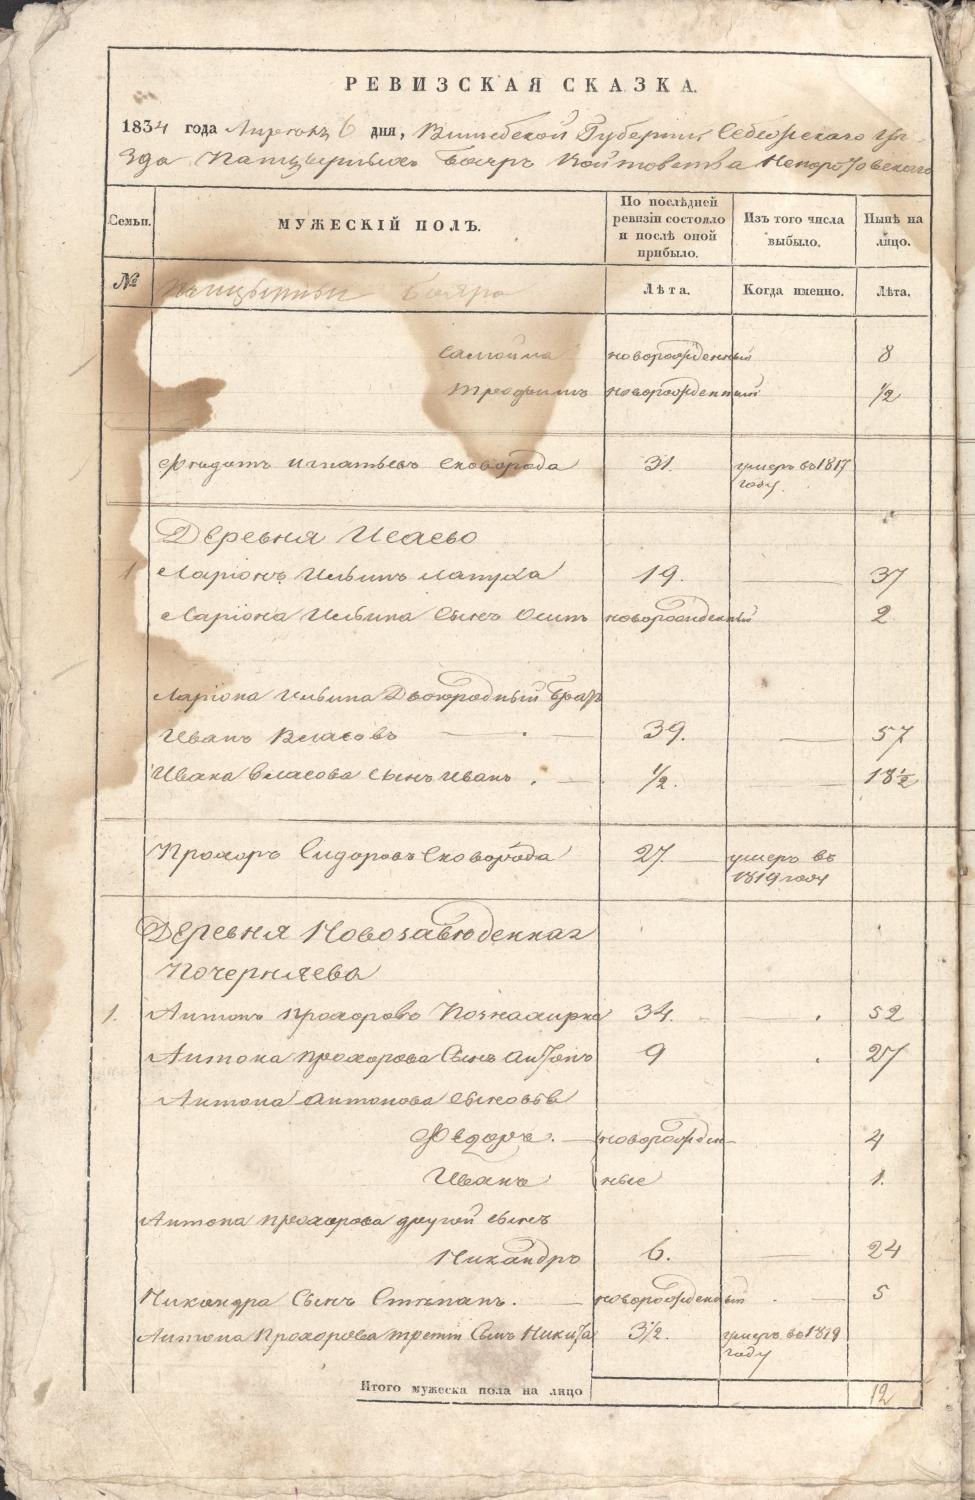 РЕВИЗСКАЯ СКАЗКА.
1834 года Апреля 6 дня, Витебской Губернии Себежскаго уе-
зда Панцырныхъ Бояръ Войтовства Непоротовскаго
Семьи. МУЖЕСКІЙ ПОЛЪ. По послѣдней ревизіи состояло и послѣ оной прибыло. Изъ того числа выбыло. Нынѣ на лицо.
№ Панцырныи Бояра Лѣта. Когда именно. Лѣта.
Самойла новорожденный 8
новорожденный 1/2
Игнатьевъ Сковорода 31. умеръ въ 1817 году
Деревня Исаево
1 Ларіонъ Ильинъ Лапуха 19. 37
Ларіона Ильина Сынъ Осипъ новорожденный 2
Ларіона Ильина Двоюродный Братъ
Иванъ Власовъ 39. 57
Ивана Власова Сынъ Иванъ 1/2. 18 1/2
Прохоръ Сидоровъ Сковорода 27. умеръ въ 1819 году
Деревня Новозаведенная
Почерняева
1. Антонъ Прохоровъ 34. 52
Антона Прохорова Сынъ Антонъ 9 27
Антона Антонова Сыновья
Федоръ. новорожден- 4
Иванъ ные 1.
Антона Прохорова другой сынъ
Никандръ 6. 24
Никандра Сынъ Степанъ. новорожденный 5
Антона Прохорова третій Сынъ Никита 3 1/2. умеръ въ 1819 году
Итого мужеска пола на лицо 12